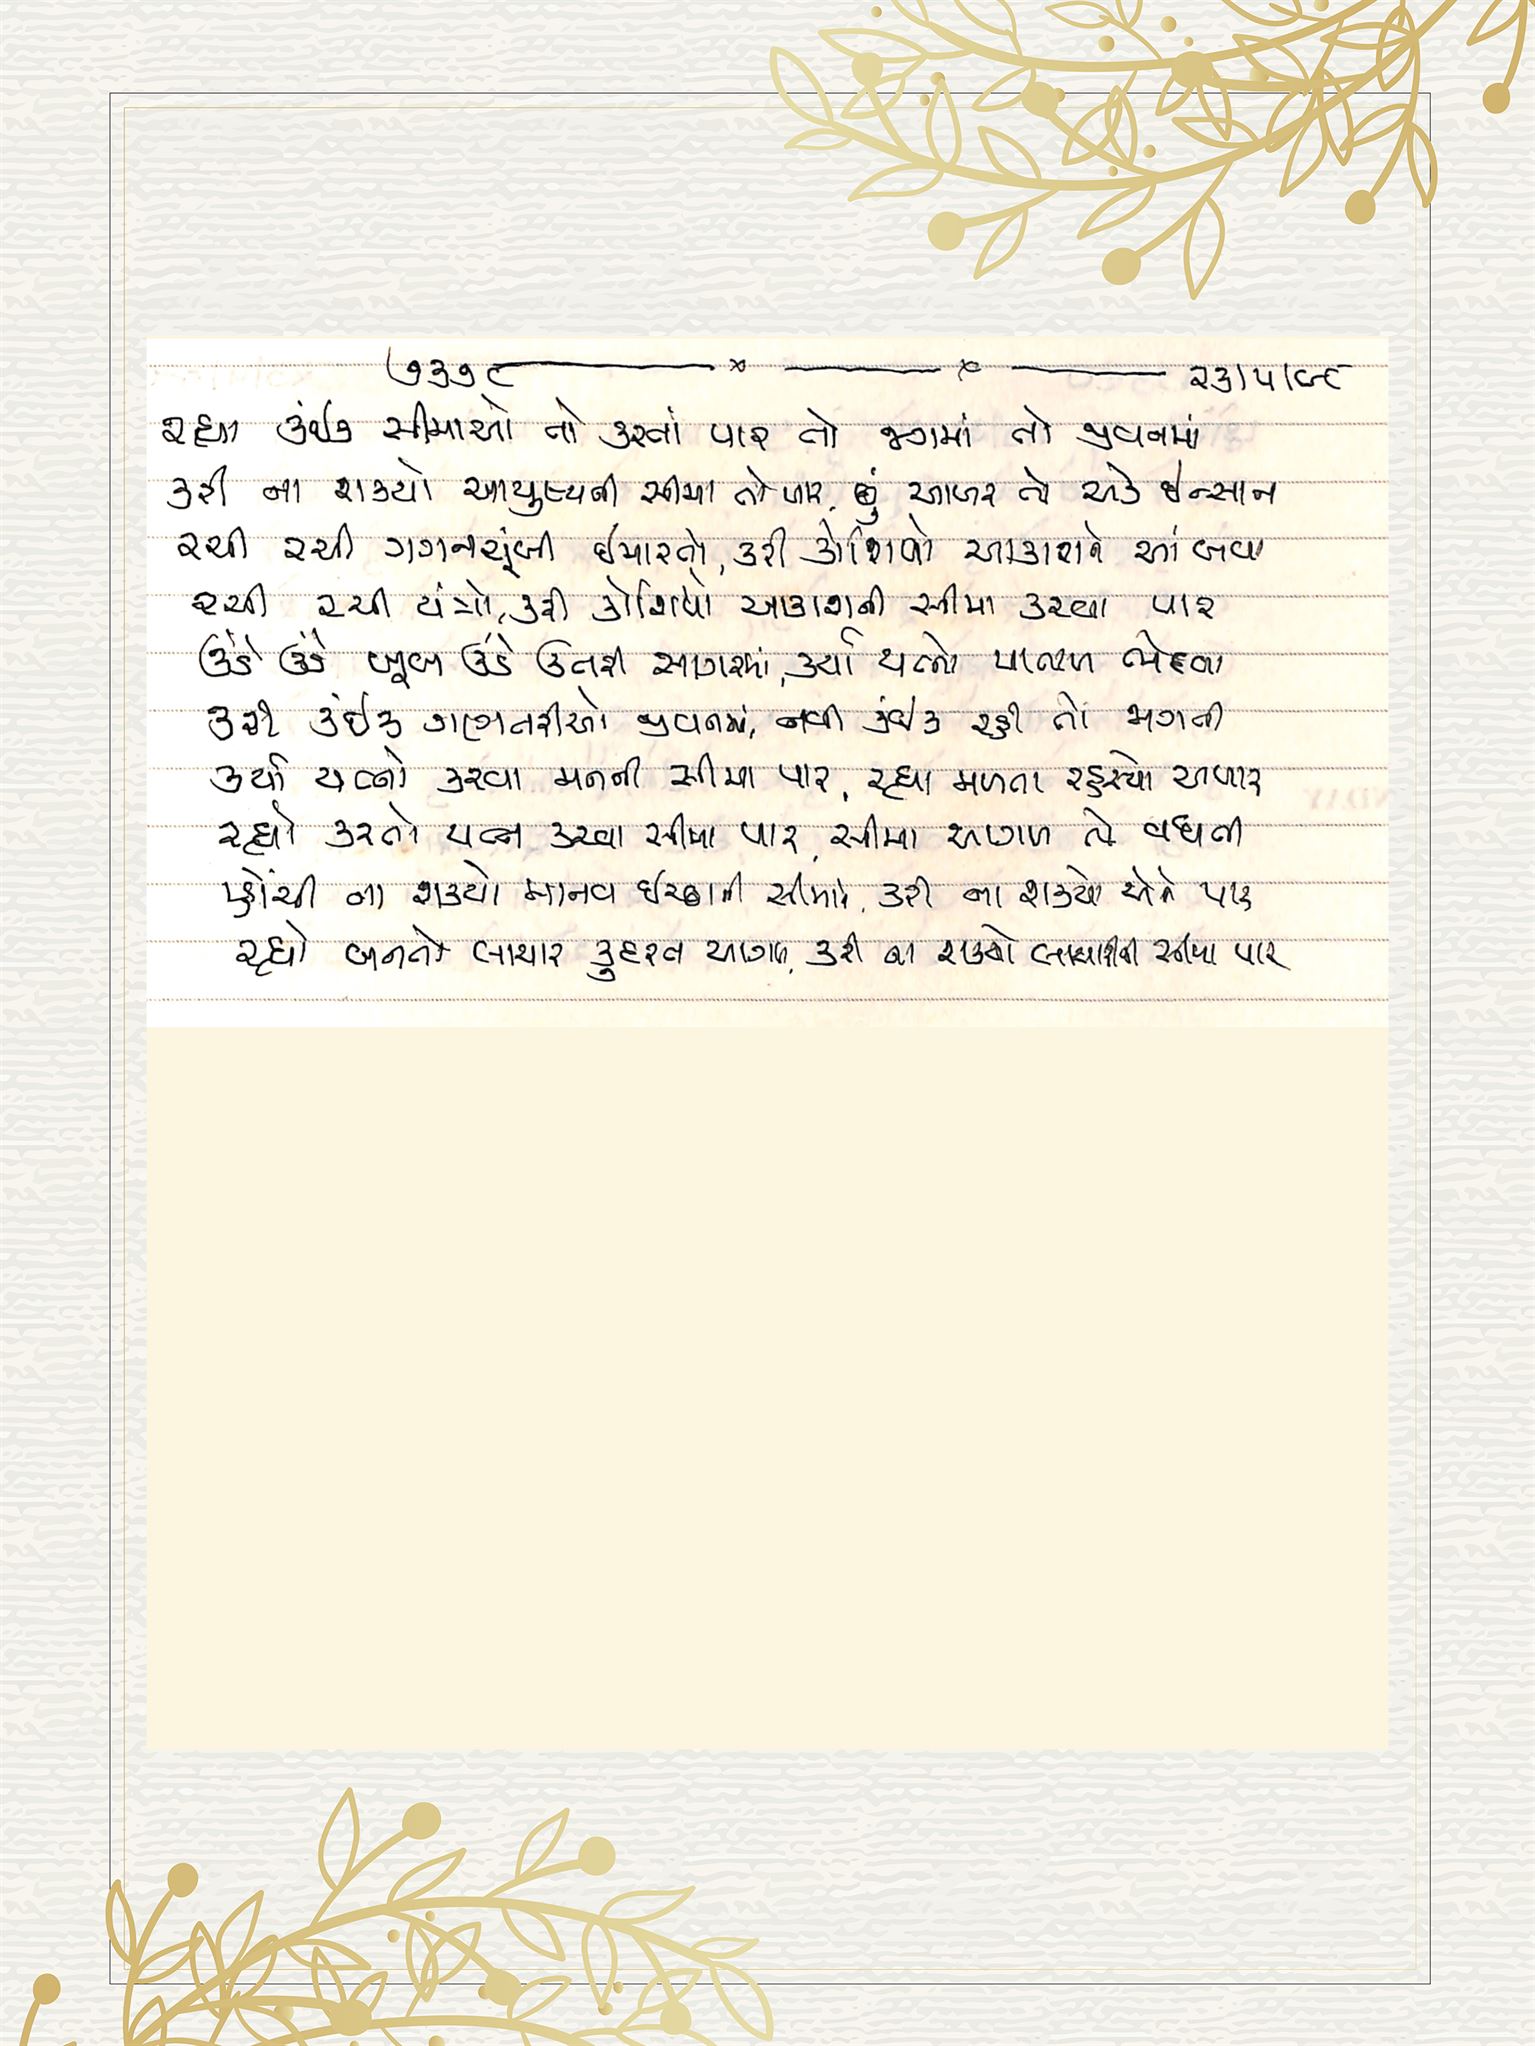 ૧૩૧૯ ૨૩/૫/૮૮
રહ્યા કંઈક સીમાઓ તો કરતાં પાર તો જગમાં તો જીવનમાં
કરી ના શક્યો આયુષ્યની સીમા તો પાર, છું આખર તો એક ઈન્સાન
રચી રચી ગગનચૂંબી ઈમારતો, કરી કોશિષો આકાશને આંબવા
રચી રચી યંત્રો, કરી કોશિષો આકાશની સીમા કરવા પાર
ઊંડે ઊંડે ખૂબ ઊંડે ઉતરી સાગરમાં, કર્યા યત્નો પાતાળ ભેદવા
કરી કંઈક ગણતરીઓ જીવનમાં, નવી કંઈક રહી તો જાગતી
કર્યા યત્નો કરવા મનની સીમા પાર, રહ્યા મળતા રહસ્યો અપાર
રહ્યો કરતો યત્ન કરવા સીમા પાર, સીમા આગળ તો વધતી
પ્હોંચી ના શક્યો માનવ ઈચ્છાની સીમાએ, કરી ના શક્યો એને પાર
રહ્યો બનતો લાચાર કુદરત આગળ, કરી ના શક્યો લાચારીની સીમા પાર